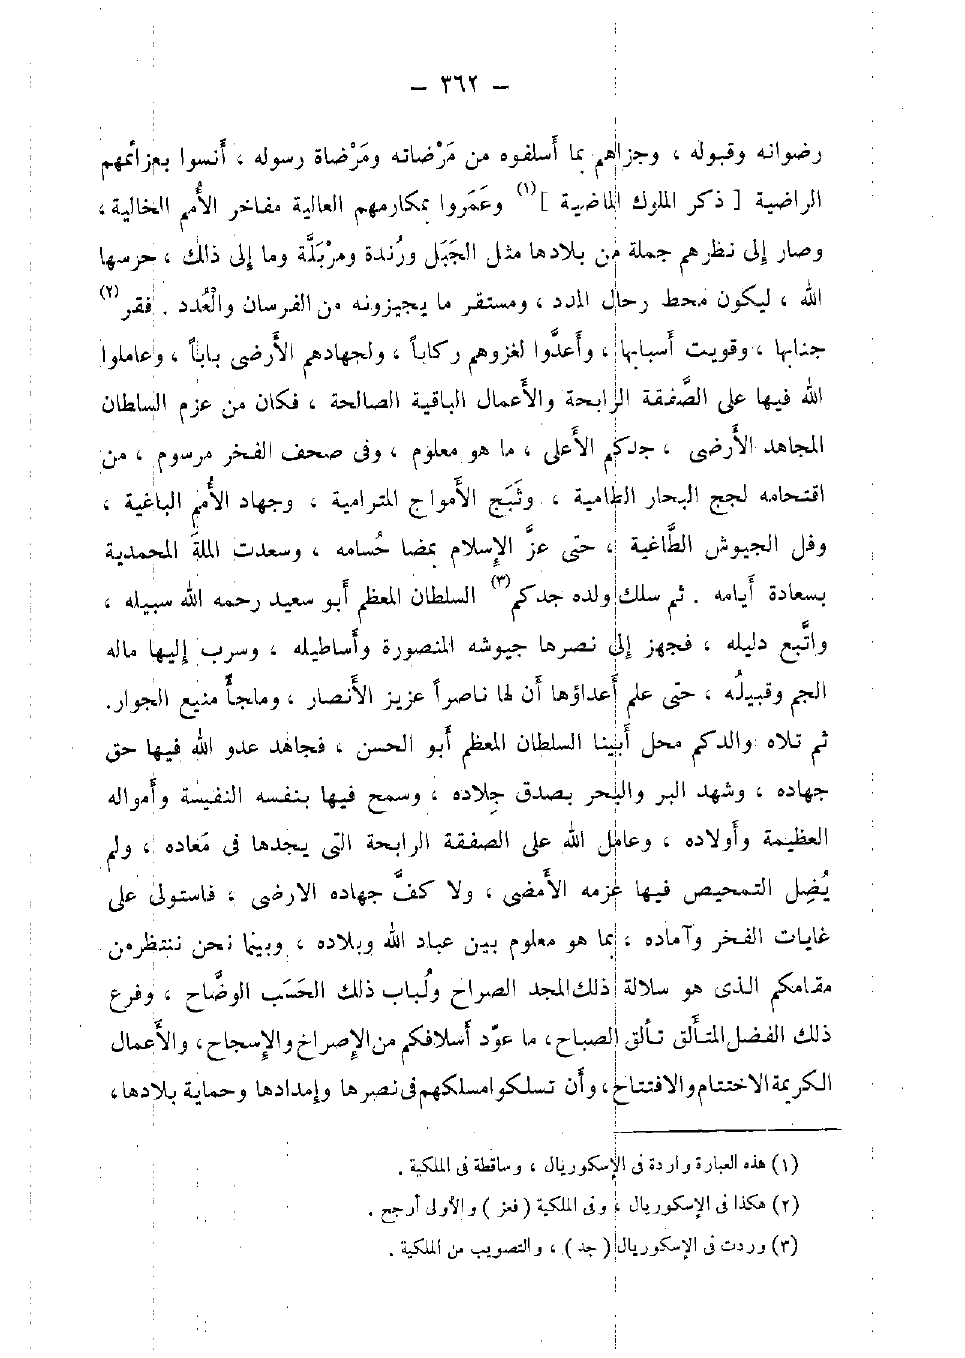 — ٣٦٢ —
رضوانه وقبوله ، وجزاهم بما أسلفوه من مَرْضاته ومَرْضاة رسوله ، أنسوا بعزائمهم
الراضية [ ذكر الملوك الماضية ](١) وعَمَروا بمكارمهم العالية مفاخر الأُمم الخالية ،
وصار إلى نظرهم جملة من بلادها مثل الجَبَل ورُندة ومرْبَلَّة وما إلى ذلك ، حرسها
الله ، ليكون محط رحال المدد ، ومستقر ما يجيزونه من الفرسان والْعُدد . فقر(٢)
جنابها ، وقويت أسبابها ، وأعدَّوا لغزوهم ركاباً ، ولجهادهم الأَرضى باباً ، وعاملوا
الله فيها على الصَّفقة الرابحة والأَعمال الباقية الصالحة ، فكان من عزم السلطان
المجاهد الأَرضى ، جدكم الأَعلى ، ما هو معلوم ، وفى صحف الفخر مرسوم ، من
اقتحامه لجج البحار الطامية ، وثَبَج الأَمواج المترامية ، وجهاد الأُمم الباغية ،
وفل الجيوش الطَّاغية ، حتى عزَّ الإِسلام بمضا حُسامه ، وسعدت الملة المحمدية
بسعادة أَيامه . ثم سلك ولده جدكم(٣) السلطان المعظم أَبو سعيد رحمه الله سبيله ،
واتَّبع دليله ، فجهز إلى نصرها جيوشه المنصورة وأَساطيله ، وسرب إليها ماله
الجم وقبيلُه ، حتى علم أَعداؤها أَن لها ناصراً عزيز الأَنصار ، وملجأً منيع الجوار.
ثم تلاه والدكم محل أَبينا السلطان المعظم أَبو الحسن ، فجاهد عدو الله فيها حق
جهاده ، وشهد البر والبحر بصدق جِلاده ، وسمح فيها بنفسه النفيسة وأَمواله
العظيمة وأَولاده ، وعامل الله على الصفقة الرابحة التى يجدها فى مَعاده ، ولم
يُضِل التمحيص فيها عزمه الأَمضى ، ولا كفَّ جهاده الارضى ، فاستولى على
غايات الفخر وآماده ، بما هو معلوم بين عباد الله وبلاده ، وبينما نحن ننتظر من
مقامكم الذى هو سلالة ذلك المجد الصراح ولُباب ذلك الحَسَب الوضَّاح ، وفرع
ذلك الفضل المتأَلق تأَلق الصباح، ما عوّد أَسلافكم من الإِصراخ والإِسجاح، والأَعمال
الكريمة الاختتام والافتتاح، وأَن تسلكوا مسلكهم فى نصرها وإمدادها وحماية بلادها،
(١) هذه العبارة واردة فى الإسكوريال ، وساقطة فى الملكية .
(٢) هكذا فى الإسكوريال ، وفى الملكية ( فعز ) والأولى أرجح .
(٣) وردت فى الإسكوريال ( جد ) ، والتصويب من الملكية .